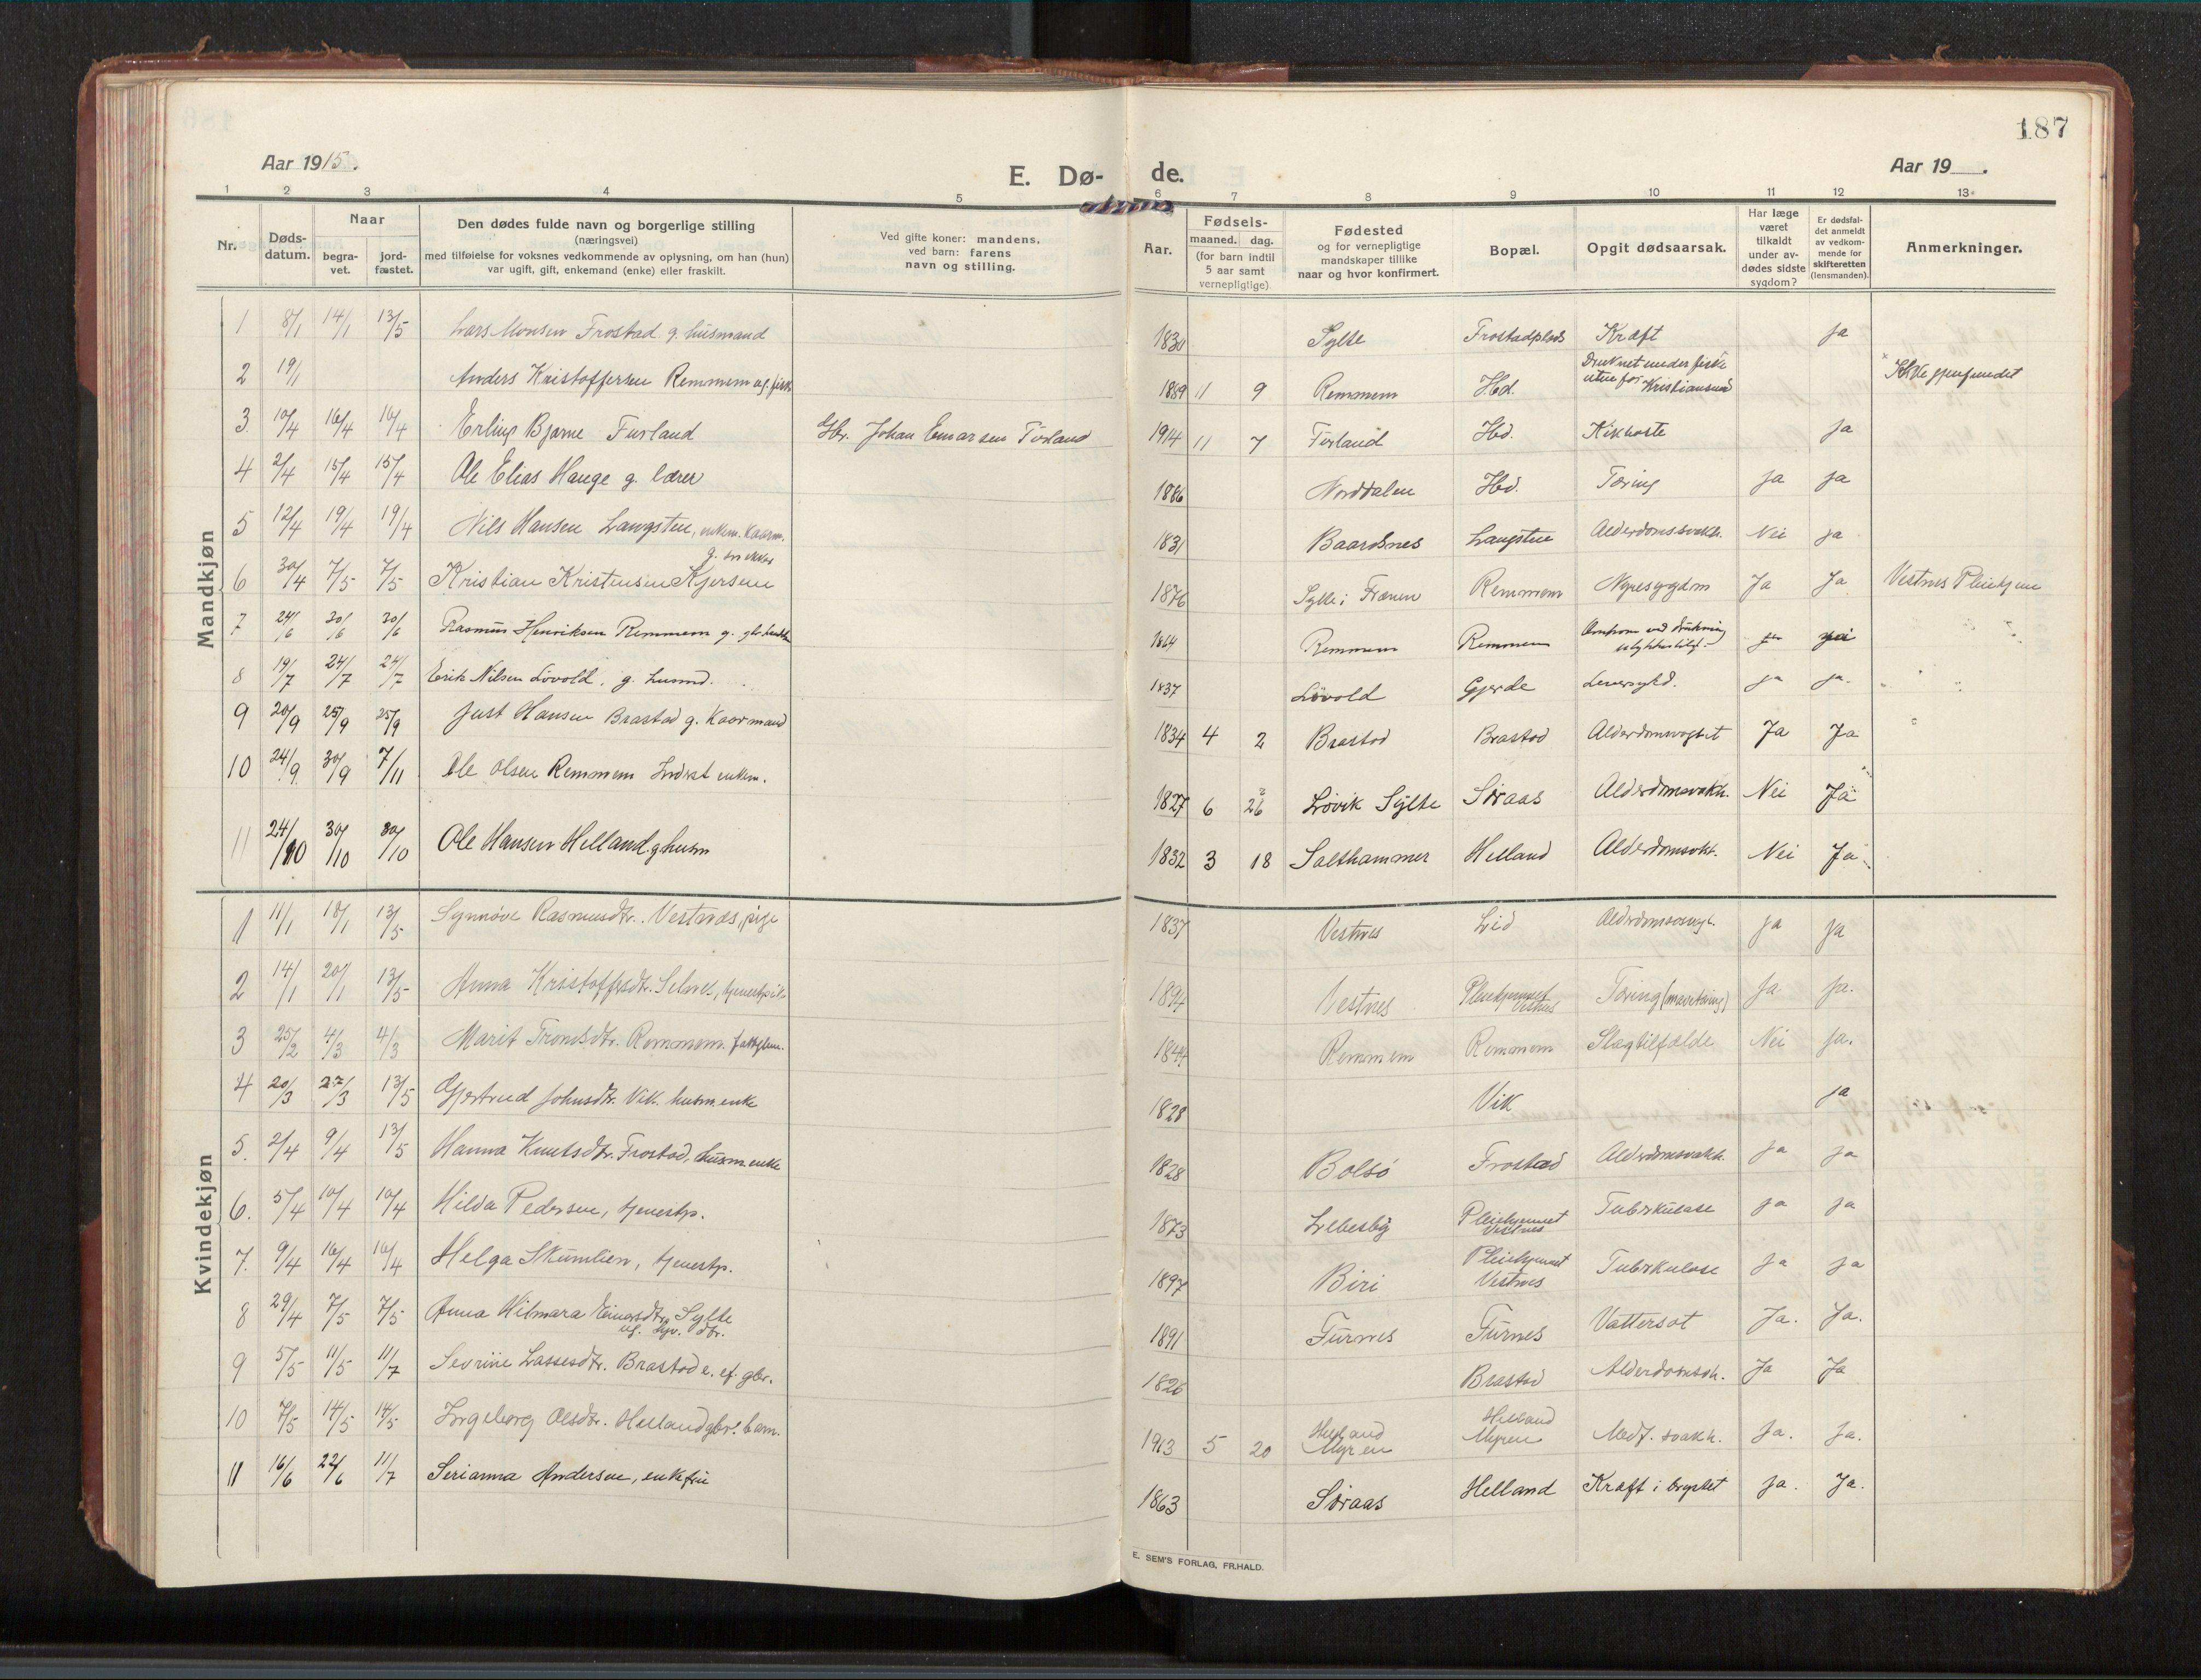 187
Aar 1915.
E. Dø-
de.
Aar 19
1 2 3 4 5 6 7 8 9 10 11 12 13
Nr.
Døds-
datum.
Naar
begra-
vet.
jord-
fæstet.
Den dødes fulde navn og borgerlige stilling
(næringsvei)
med tilføielse for voksnes vedkommende av oplysning, om han (hun)
var ugift, gift, enkemand (enke) eller fraskilt.
Ved gifte koner: mandens,
ved barn: farens
navn og stilling.
Aar.
Fødsels-
maaned. dag.
(for barn indtil
5 aar samt
vernepligtige)
Fødested
og for vernepligtige
mandskaper tillike
naar og hvor konfirmert.
Bopæl.
Opgit dødsaarsak.
Har læge
været
tilkaldt
under av-
dødes sidste
sygdom?
Er dødsfal-
det anmeldt
av vedkom-
mende for
skifteretten
(lensmanden).
Anmerkninger.
Mandkjøn
1 8/1 14/1 13/5 Lars Monsen Frostad g. husmand 1830 Sylte Frostadplads Kræft Ja
2 19/1 Anders Kristoffersen Remmem ug. fisk 1889 11 9 Remmem Hd. Druknet under fiske utenfor Kristiansund Ikke gjenfundet
3 10/4 16/4 16/4 Erling Bjarne Furland Gbr. Johan Emarsen Furland 1914 11 7 Furland Hd. Kikhoste Ja
4 2/4 15/4 15/4 Ole Elias Hauge g. lærer 1886 Norddalen Hd. Tæring Ja Ja
5 12/4 19/4 19/4 Nils Hansen Langsten, enkem. kaarm. 1831 Baardsnes Langsten Alderdomssvakh. Nei Ja
6 30/4 7/5 7/5 Kristian Kristensen Kjersem g. snekker 1876 Sylte i Frænen Remmem Nyresygdom Ja Ja Vestnes Pleiehjem
7 24/6 30/6 30/6 Rasmus Henriksen Remmem g. 1864 Remmem Remmem Omkom ved drukning Ja
8 19/7 24/7 24/7 Erik Nilsen Løvold, g. husmd. 1837 Løvold Gjerde Leversykd. Ja Ja.
9 20/9 25/9 25/9 Just Hansen Brastad g. Kaarmand 1834 4 2 Brastad Brastad Ja Ja
10 24/9 30/9 7/11 Ole Olsen Remmem Inderst enkem. 1827 6 26 Løvik Sylte Søraas Alderdomsvakh. Nei Ja
11 24/10 30/10 30/10 Ole Hansen Helland g husm 1832 3 18 Salthammer Helland Alderdomsvkt. Nei Ja
Kvindekjøn
1 11/1 18/1 13/5 Synnøve Rasmusdtr. Vestnæs, pige 1837 Vestnes Lid Ja Ja
2 14/1 20/1 13/5 Anna Kristoffersdtr. Selnes, tjenestpik 1894 Vestnes Pleiehjemmet Vestnes Tæring (mavetæring) Ja Ja.
3 25/2 4/3 4/3 Marit Trondsdtr. Remmem. fattiglem. 1844 Remmem Remmem Slagtilfælde Nei Ja.
4 20/3 27/3 13/5 Gjertrud Johnsdtr. Vik. husm. enke 1828 Vik Ja
5. 2/4 9/4 13/5 Hanna Knutsdtr. Frostad, husm. enke 1828 Bolsø Frostad Alderdomsvakh. Ja Ja
6. 5/4 10/4 10/4 Hilda Pedersen, tjenestp. 1873 Lebesby Pleiehjemmet Vestnes Tuberkulose Ja Ja
7. 9/4 16/4 16/4 Helga Skumlien, tjenestp. 1897 Biri Pleiehjemmet Vestnes Tuberkulose Ja Ja
8 29/4 7/5 7/5 Anna Hilmara Einarsdtr. Sylte ug. dtr. 1891 Furnes Furnes Vattersot Ja. Ja.
9 5/5 11/5 11/7 Sevrine Lassesdtr. Brastad e. ef. gbr. 1826 Brastad Alderdomssv. Ja Ja
10 7/5 14/5 14/5 Ingeborg Olsdtr. Helland gbr. barn. 1913 5 20 Helland Myren Helland Myren Medf. svakh. Ja. Ja.
11 16/6 22/6 11/7 Serianna Andersen, enkefru 1863 Søraas Helland Kræft i brystet Ja. Ja.
E. SEM'S FORLAG, FR.HALD.